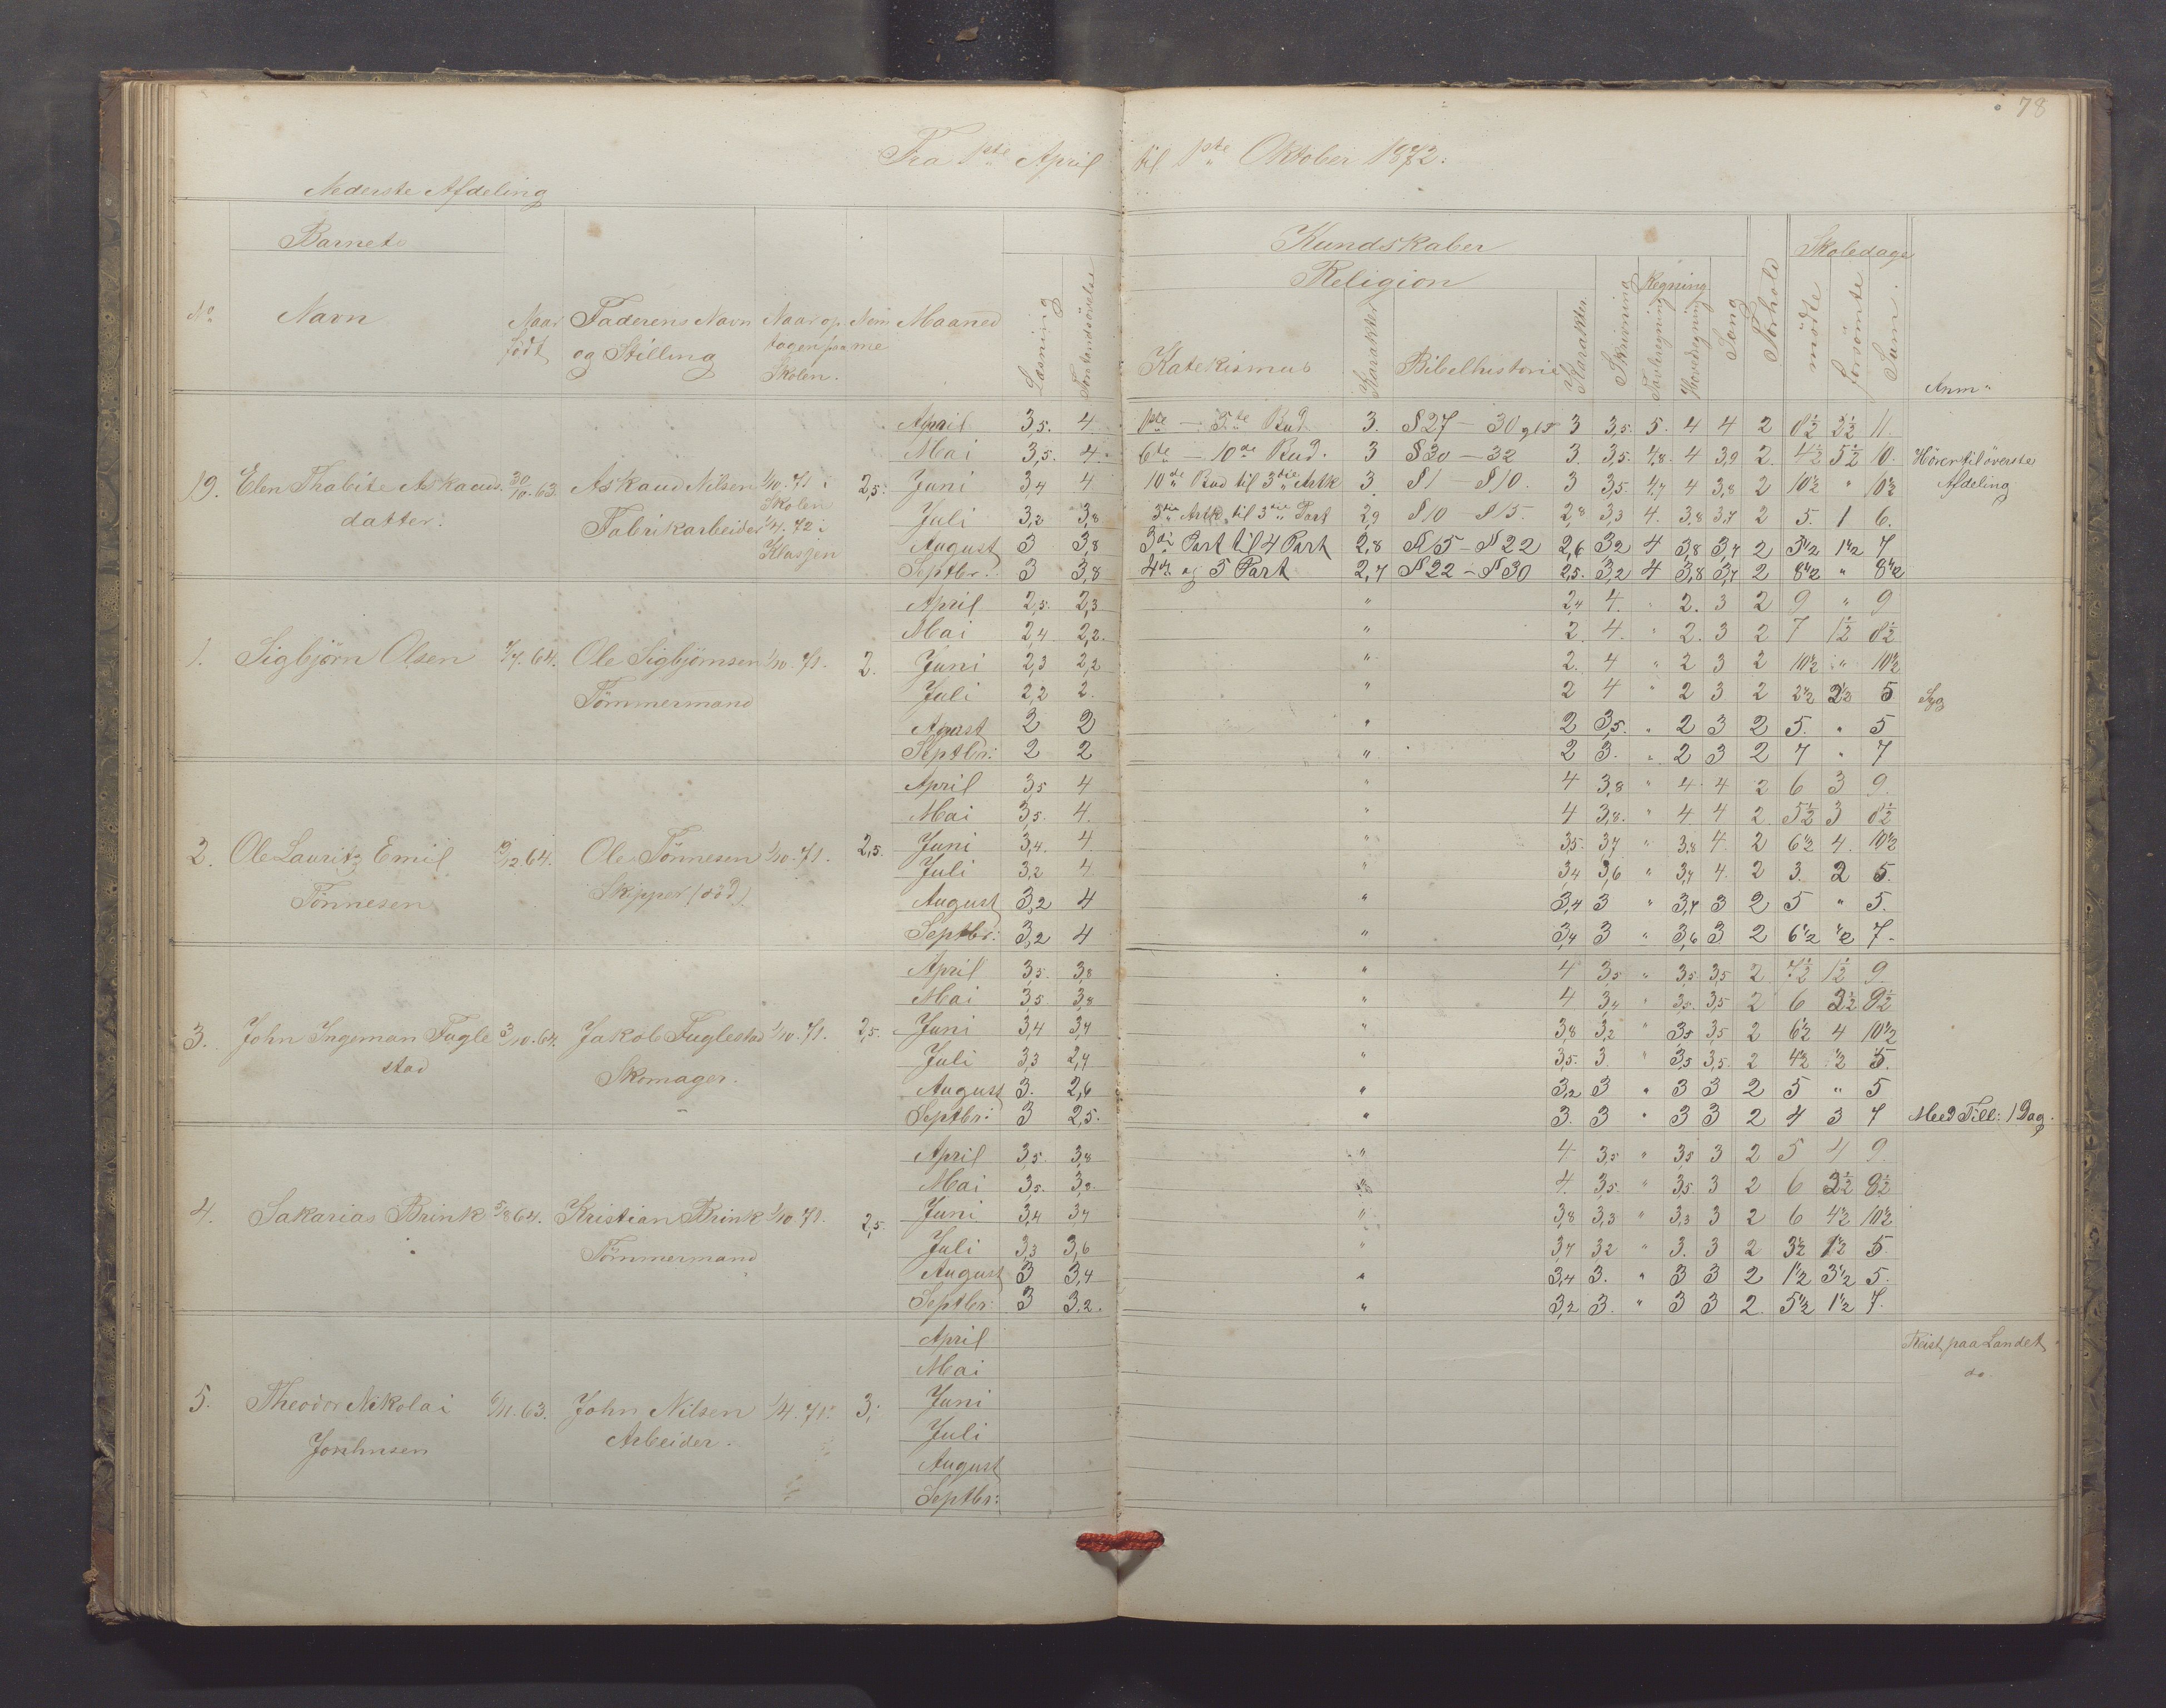 78
Fra 1ste April til 1ste Oktober 1872.
Nederste Afdeling
Barnets Kundskaber Skoledage
Religion Regning
No Navn Naar födt Faderens Navn og Stilling Naar optagen paa Skolen. Maaned Læsning Forstandsövelse Katekismus Karakter Bibelhistorie Karakter Skrivning Tavleregning Hovedregning Sang Forhold mödte forsömte Sum. Anm.
April 3,5. 4 1ste — 5te Bud 3. § 27 — 30 3 3,5. 5. 4 4 2 8½ 2½ 11.
Mai 3,5. 4. 6te — 10de Bud. 3 § 30 — 32 3. 3,5. 4,8. 4 3,9 2. 4½ 5½ 10. Hörer til överste
19. Elen Thabite Askauds 30/10.63. Askaud Nilsen 1/10.71 i 2,5. Juni 3,4 4 10de Bud til 3die Artk 3. § 1 — § 10. 3 3,5. 4,7 4 3,8 2 10½ " 10½ Afdeling
datter. Fabrikarbeider Skolen 1/4.72 i Klassen Juli 3,2 3,8 3die Artk. til 3die Part 2,9 § 10 — § 15. 2,8 3,3 4. 3,8 3,7 2 5. 1 6.
August 3 3,8 3die Part til 4 Part 2,8 § 15 — § 22 2,6 3,2 4 3,8 3,7 2 5½ 1½ 7
Septbr. 3 3,8 4de og 5 Part 2,7 § 22 — § 30 2,5. 3,2 4 3,8 3,7 2 8½ " 8½
April 2,5. 2,3 " 2,4 4. " 2. 3 2 9 " 9
Mai 2,4. 2,2. " 2. 4. " 2. 3 2 7 1½ 8½
1. Sigbjörn Olsen 64. Ole Sigbjörnsen 1/10.71. 2. Juni 2,3 2,2 " 2. 4 " 2 3 2 10½ " 10½
Tömmermand Juli 2,2 2. " 2 4 " 2 3 2 2½ 2½ 5 Syg
August 2 2 " 2 3,5. " 2 3 2 5. " 5
Septbr: 2 2 " 2 3. " 2 3 2 7 " 7
April 3,5 4 " 4 3,8 " 4. 4 2 6 3 9.
Mai 3,5. 4. " 4 3,8. " 4 4 2 5½ 3 8½
2. Ole Lauritz Emil 64. Ole Tönnesen 1/10.71. 2,5. Juni 3,4. 4 " 3,5. 3,7 " 3,8 4. 2 6½ 4. 10½
Tönnesen Skipper (död) Juli 3,2 4 " 3,4 3,6 " 3,7 4. 2 3. 2 5.
August 3,2 4 " 3,4 3 " 3,7 3 2 5 " 5.
Septbr: 3,2 4 " 3,4 3 " 3,6 3 2 6½ ½ 7.
April 3,5. 3,8 " 4 3,5 " 3,5 3,5 2 7½ 1½ 9
Mai 3,5 3,8 " 4 3,4 " 3,5. 3,5 2 6 2½ 8½
3. John Ingeman Fugle 3/10.64. Jakob Fuglestad 1/10.71. 2,5. Juni 3,4 3,7 " 3,8 3,2 " 3,5 3,5 2 6½ 4 10½
stad Skomager. Juli 3,3 2,7 " 3,5. 3 " 3,5 3,5. 2 4½ ½ 5.
August 3. 2,6 " 3,2 3 " 3 3 2 5 " 5
Septbr: 3 2,5. " 3. 3 " 3 3 2 4 3 7 Med Till: 1 Dag.
April 3,5. 3,8 " 4 3,5 " 3,5 3 2 5 4 9
Mai 3,5. 3,8. " 4. 3,5. " 3,5. 3 2 6 2½ 8½
4. Sakarias Brink 5/8 64. Kristian Brink 1/10.71. 2,5. Juni 3,4 3,7 " 3,8 3,3 " 3,3 3 2 6 4½ 10½
Tömmermand Juli 3,3 3,6 " 3,7 3,2 " 3. 3 2 3½ 1½ 5
August 3 3,4 " 3,4 3. " 3 3 2 1½ 3½ 5.
Septbr: 3 3,2. " 3,2 3. " 3 3 2. 5½ 1½ 7.
April Reist paa Landet
Mai do.
5. Theodor Nikolai 63. John Nilsen 1/4.71. 3. Juni
Arbeider. Juli
Jonhnsen August
Septbr: